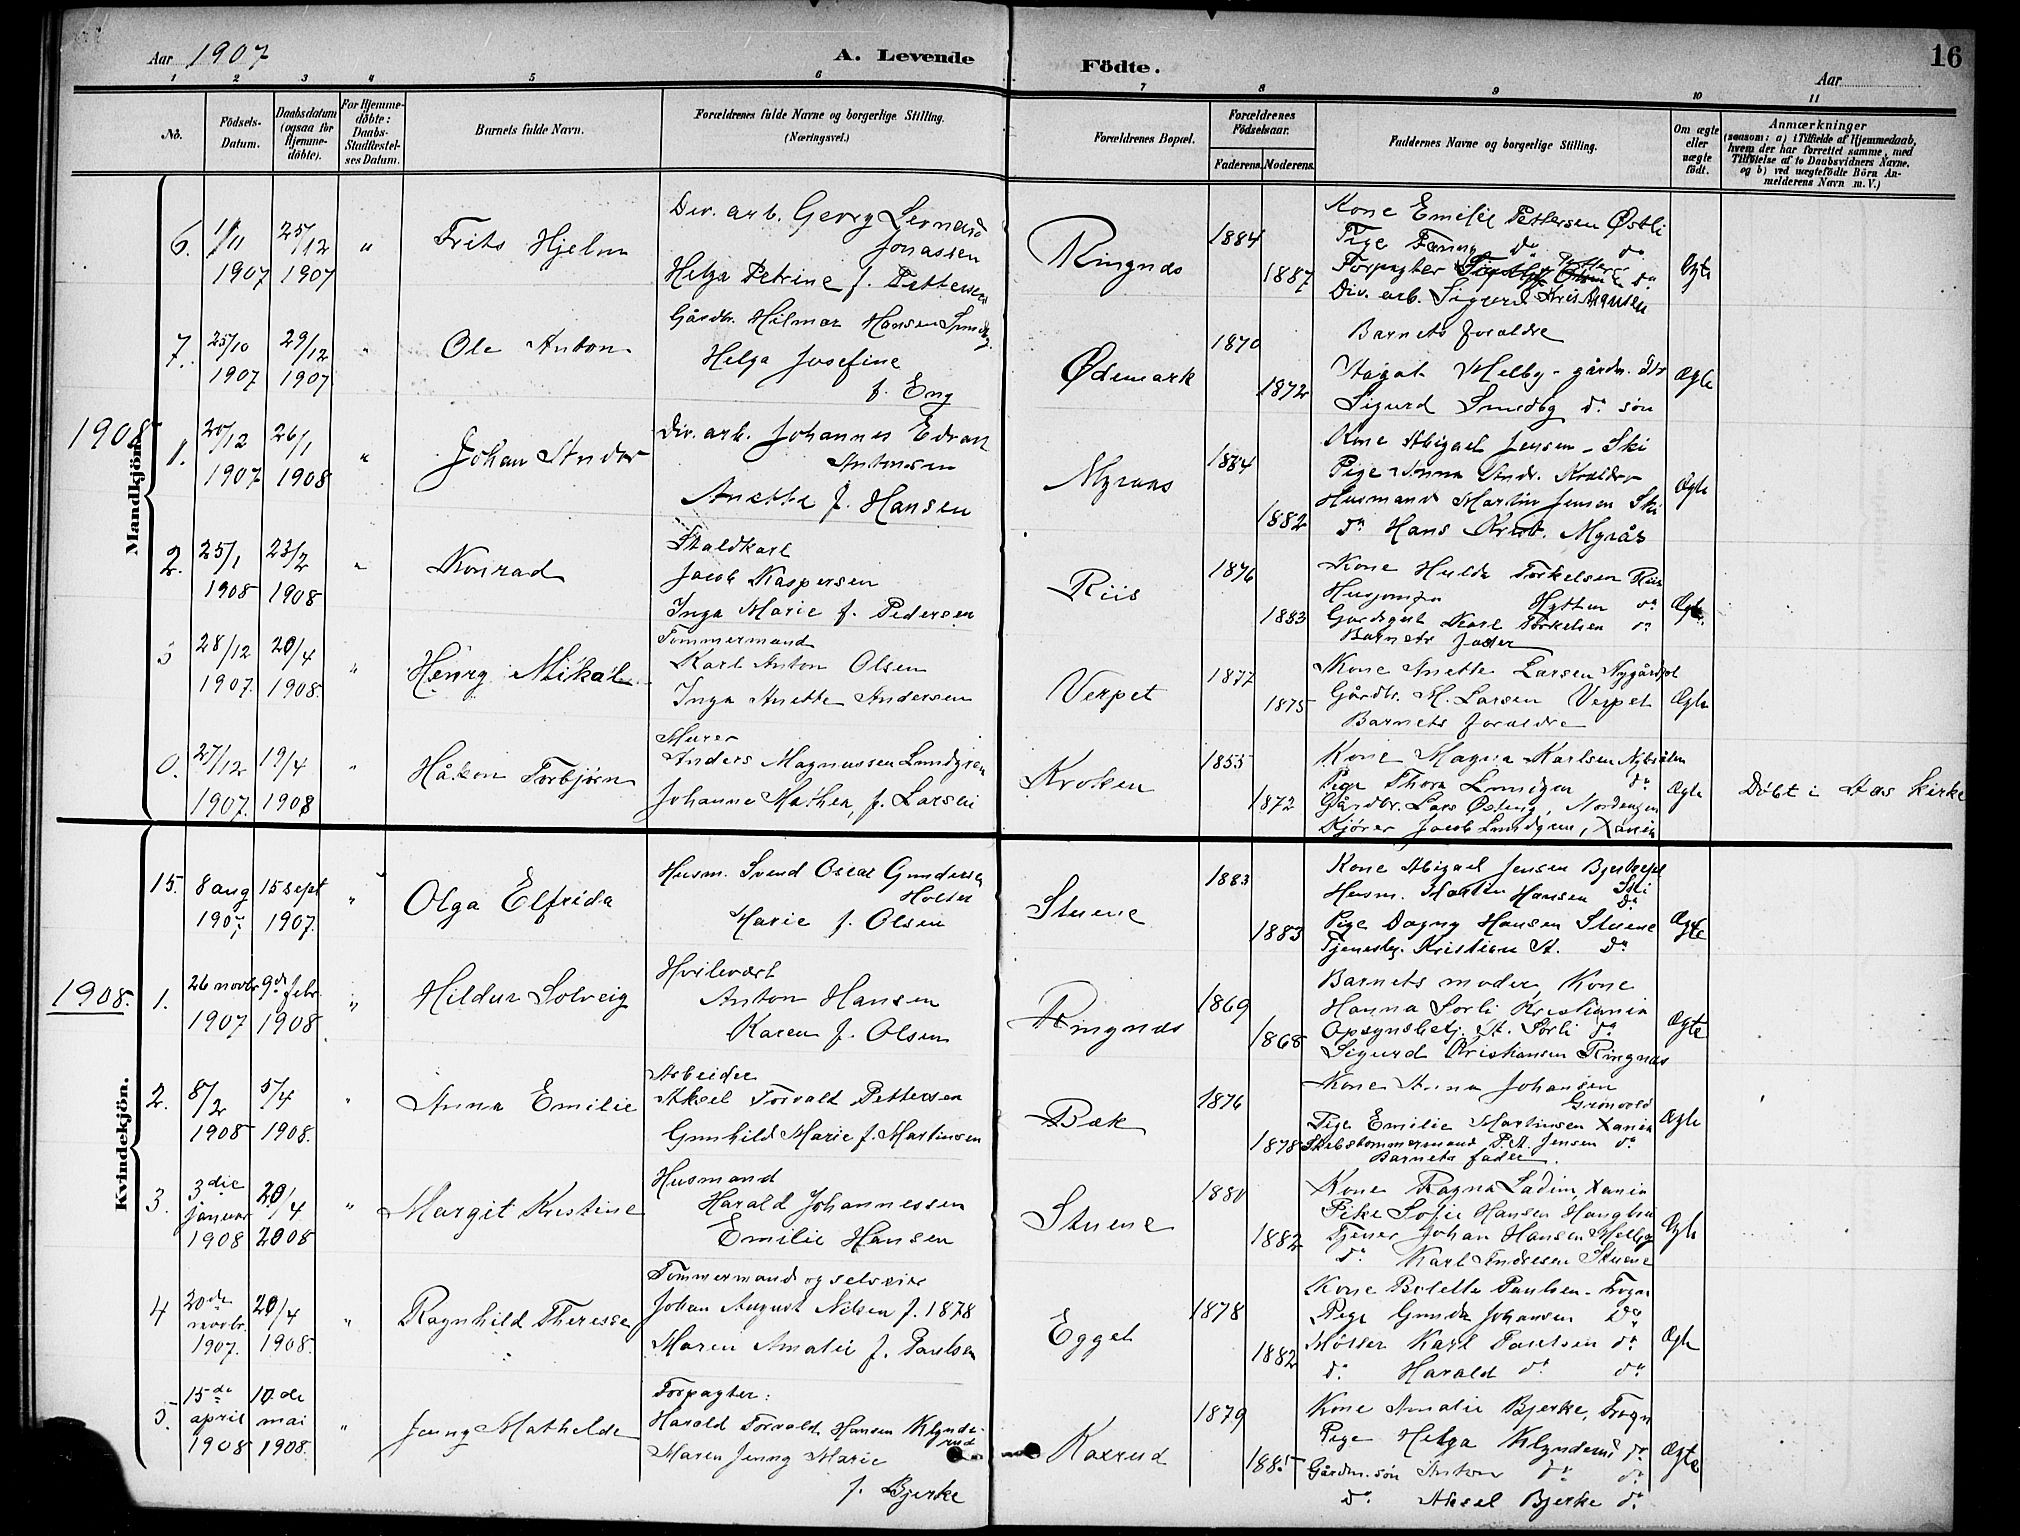 Aar 1907
A. Levende
Födte.
Aar
16
1 2 3 4 5 6 7 8 9 10 11
No.
Födsels-Datum.
Daabsdatum (ogsaa for Hjemme-döbte).
For Hjemme-döbte: Daabs-Stadfæstel-ses Datum.
Barnets fulde Navn.
Forældrenes fulde Navne og borgerlige Stilling.
(Næringsvei.)
Forældrenes Bopæl.
Forældrenes Födselsaar.
Faderens. Moderens.
Faddernes Navne og borgerlige Stilling.
Om ægte eller uægte födt.
Anmærkninger
(saasom: a) i Tilfælde af Hjemmedaab, hvem der har forrettet samme, med Tilföielse af to Daabsvidners Navne, og b) ved uægtefödte Börn An-melderens Navn m. V.)
Mandkjön.
6. 1/11 1907 25/12 1907 " Frits Hjelm
Div. arb. Georg
Jonassen
Helga Petrine f. Pettersen
Ringnæs 1884 1887
Kone Emilie Pettersen Østli
Pige Fanny do do
Forpagter
Div. arb. Sigurd Kristiansen
Ægte
7. 25/10 1907 29/12 1907 " Ole Anton
Gårdbr. Hilmar Hansen Smedbg
Helga Josefine
f. Eng
Ødemark 1870 1872
Barnets forældre
Melby - gårdm.
Sigurd Smedbg do søn
Ægte
1908
1. 20/12 1907 26/1 1908 " Johan
Div. arb. Johannes Edvart
Antonsen
Anette f. Hansen
Myraas 1884 1882
Kone Abigael Jensen - Ski
Pige Anna
Husmand Martin Jensen Ski
do Hans Krist. Myrås
Ægte
2. 25/1 1908 23/2 1908 " Konrad
Staldkarl
Jacob Kaspersen
Inga Marie f. Pedersen
Riis 1876 1883
Kone Hulda Torkelsen Riis
Husjomfru Hytten do
Gardsgut Karl Torkelsen do
Barnets fader
Ægte
3 28/12 1907. 20/4 1908. " Henry Mikal
Tømmermand
Karl Anton Olsen
Inga Anette Andersen
Verpet 1877 1875
Kone Anette Larsen
Gårdbr. M. Larsen Verpet
Barnets forældre
Ægte
0. 27/12 1907. 19/4 1908 " Håkon Torbjørn
Murer
Anders Magnussen Lundgren
Johanne Mathea, f. Larsen
Kroken 1855 1872
Kone Magna Karlsen
Pige Thora Lundgren do
Gårdbr. Lars Østeng, Nordengen
Kjører Jacob Lundgren, Xania
Ægte
Døbt i Aas kirke
Kvindekjön.
15. 8 aug 1907 15 sept 1907. " Olga Elfrida
Husm. Svend Oscar Gundersen
Holter
Marie f. Olsen
Stuene 1883 1883
Kone Abigael Jensen
Husm. Martin Hansen do
Pige Dagny Hansen Stuene
Tjenestg. Kristian A. do
Ægte
1908.
1. 26 novbr 1907 9de febr 1908. " Hildur Solveig
Hvilevært
Anton Hansen
Karen f. Olsen
Ringnæs 1869 1868
Barnets moder, Kone
Hanna Sørli Kristiania
Opsynsbetj. A. Sørli do
Sigurd Kristiansen Ringnæs
Ægte
2. 8/2 1908 5/4 1908. " Anna Emilie
Arbeider
Aksel Torvald Pettersen
Gunhild Marie f. Martinsen
Bæk 1876 1878
Kone Anna Johansen
Grønvold
Pige Emilie Martinsen Xania
Skibstømmermand P. A. Jensen do
Barnets fader.
Ægte
3. 3die januar 1908 20/4 2008 " Margit Kristine
Husmand
Harald Johannessen
Emilie Hansen
Stuene 1880 1882
Kone Ragna Ladim, Xania
Pike Sofie Hansen
Tjener Johan Hansen Melby
do Karl Andresen Stuene
Ægte
4 20de novbr. 1907. 20/4 1908. " Ragnhild Theresse
Tømmermand og selveier
Johan August Nilsen f. 1878
Maren Amalie f. Paulsen
Egget 1878 1882
Kone Bolette Paulsen - Frogn
Pige Gunda Johansen do
Møller Karl Paulsen do
do Harald do do
Ægte
5. 15de april 1908 10.de mai 1908. " Jenny Mathelde
Forpagter:
Harald Torvald Hansen Klynde-
rud
Maren Jenny Marie
f. Bjerke
Kaxrud 1879 1885
Kone Amalie Bjerke, Frogn
Pige Helga Klynderud do
Gårdm. søn Anton do do
do Aksel Bjerke do
Ægte